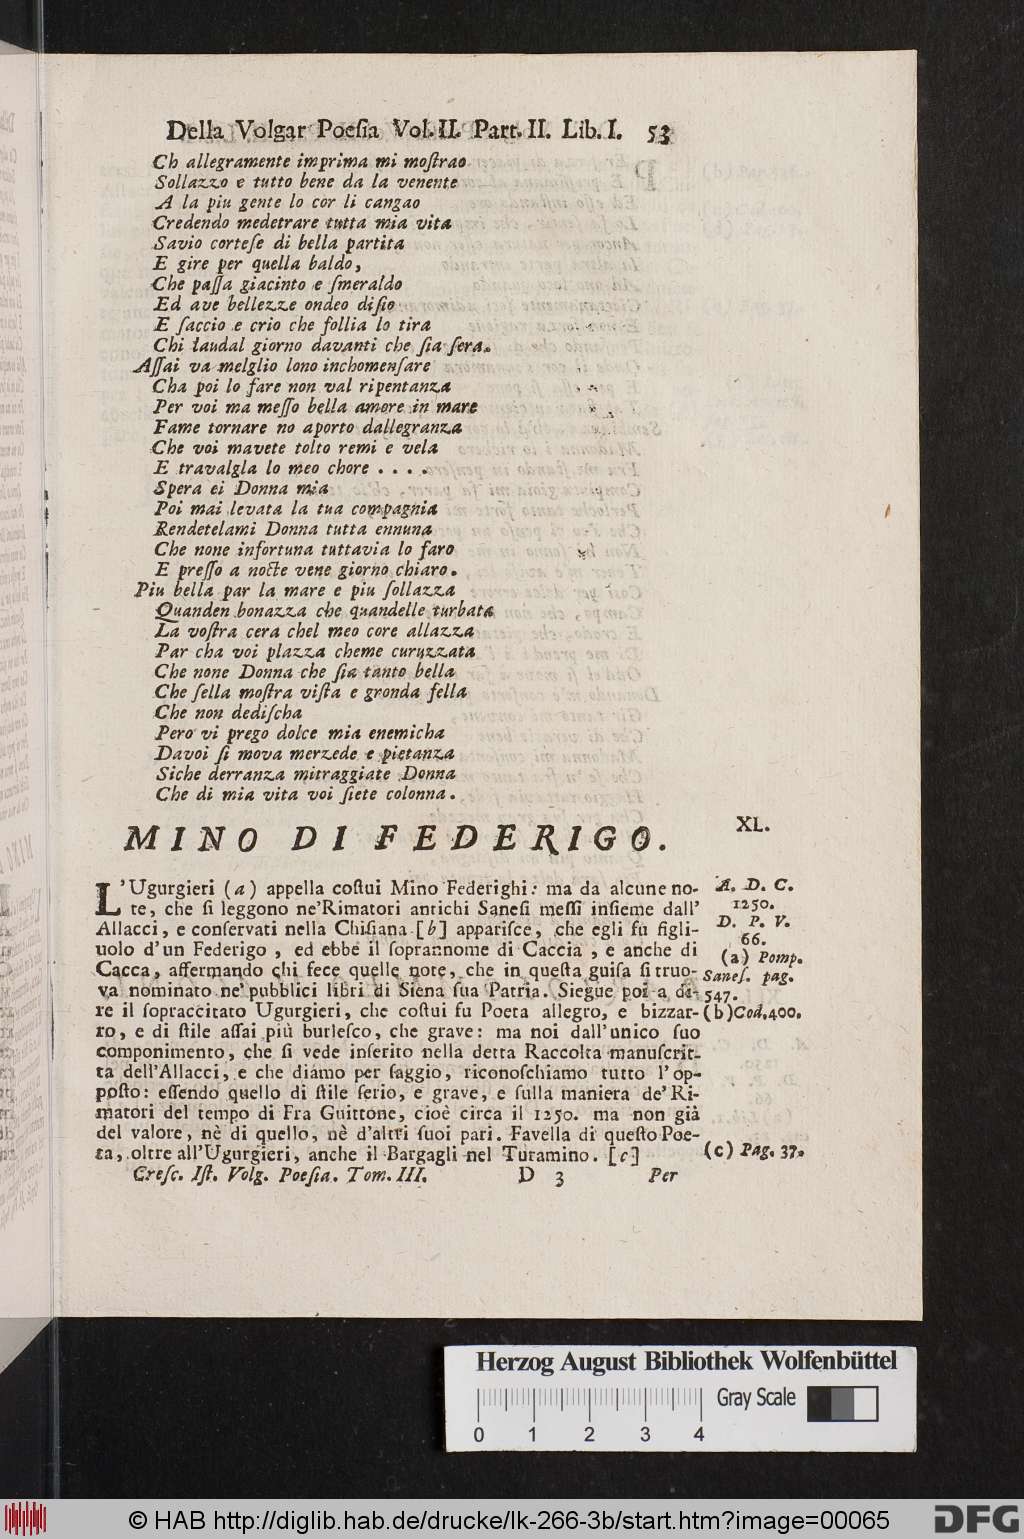 Della Volgar Poeſia Vol. II. Part. II. Lib. I. 53
Ch allegramente imprima mi moſtrao
Sollazzo e tutto bene da la venente
A la piu gente lo cor li cangao
Credendo medetrare tutta mia vita
Savio corteſe di bella partita
E gire per quella baldo,
Che paſſa giacinto e ſmeraldo
Ed ave bellezze ondeo diſio
E ſaccio e crio che follia lo tira
Chi laudal giorno davanti che ſia ſera.
Aſſai va melglio lono inchomenſare
Cha poi lo fare non val ripentanza
Per voi ma meſſo bella amore in mare
Fame tornare no aporto dallegranza
Che voi mavete tolto remi e vela
E travalgla lo meo chore . . . .
Spera ei Donna mia
Poi mai levata la tua compagnia
Rendetelami Donna tutta ennuna
Che none infortuna tuttavia lo faro
E preſſo a notte vene giorno chiaro.
Piu bella par la mare e piu ſollazza
Quanden bonazza che quandelle turbata
La voſtra cera chel meo core allazza
Par cha voi plazza cheme curuzzata
Che none Donna che ſia tanto bella
Che ſella moſtra viſta e gronda fella
Che non dediſcha
Pero vi prego dolce mia enemicha
Davoi ſi mova merzede e pietanza
Siche derranza mitraggiate Donna
Che di mia vita voi ſiete colonna.
MINO DI FEDERIGO.
XL.
L'Ugurgieri (a) appella coſtui Mino Federighi: ma da alcune no-
te, che ſi leggono ne'Rimatori antichi Saneſi meſſi inſieme dall'
Allacci, e conſervati nella Chiſiana [b] appariſce, che egli fu figli-
uolo d'un Federigo, ed ebbe il ſoprannome di Caccia, e anche di
Cacca, affermando chi fece quelle note, che in queſta guiſa ſi truo-
va nominato ne' pubblici libri di Siena ſua Patria. Siegue poi a di-
re il ſopraccitato Ugurgieri, che coſtui fu Poeta allegro, e bizzar-
ro, e di ſtile aſſai più burleſco, che grave: ma noi dall'unico ſuo
componimento, che ſi vede inſerito nella detta Raccolta manuſcrit-
ta dell'Allacci, e che diamo per ſaggio, riconoſchiamo tutto l'op-
poſto: eſſendo quello di ſtile ſerio, e grave, e ſulla maniera de' Ri-
matori del tempo di Fra Guittone, cioè circa il 1250. ma non già
del valore, nè di quello, nè d'altri ſuoi pari. Favella di queſto Poe-
ta, oltre all'Ugurgieri, anche il Bargagli nel Turamino. [c]
A. D. C.
1250.
D. P. V.
66.
(a) Pomp.
Saneſ. pag.
547.
(b) Cod. 400.
(c) Pag. 37.
Creſc. Iſt. Volg. Poeſia. Tom. III. D 3 Per
Herzog August Bibliothek Wolfenbüttel
Gray Scale
0 1 2 3 4
© HAB http://diglib.hab.de/drucke/lk-266-3b/start.htm?image=00065
DFG